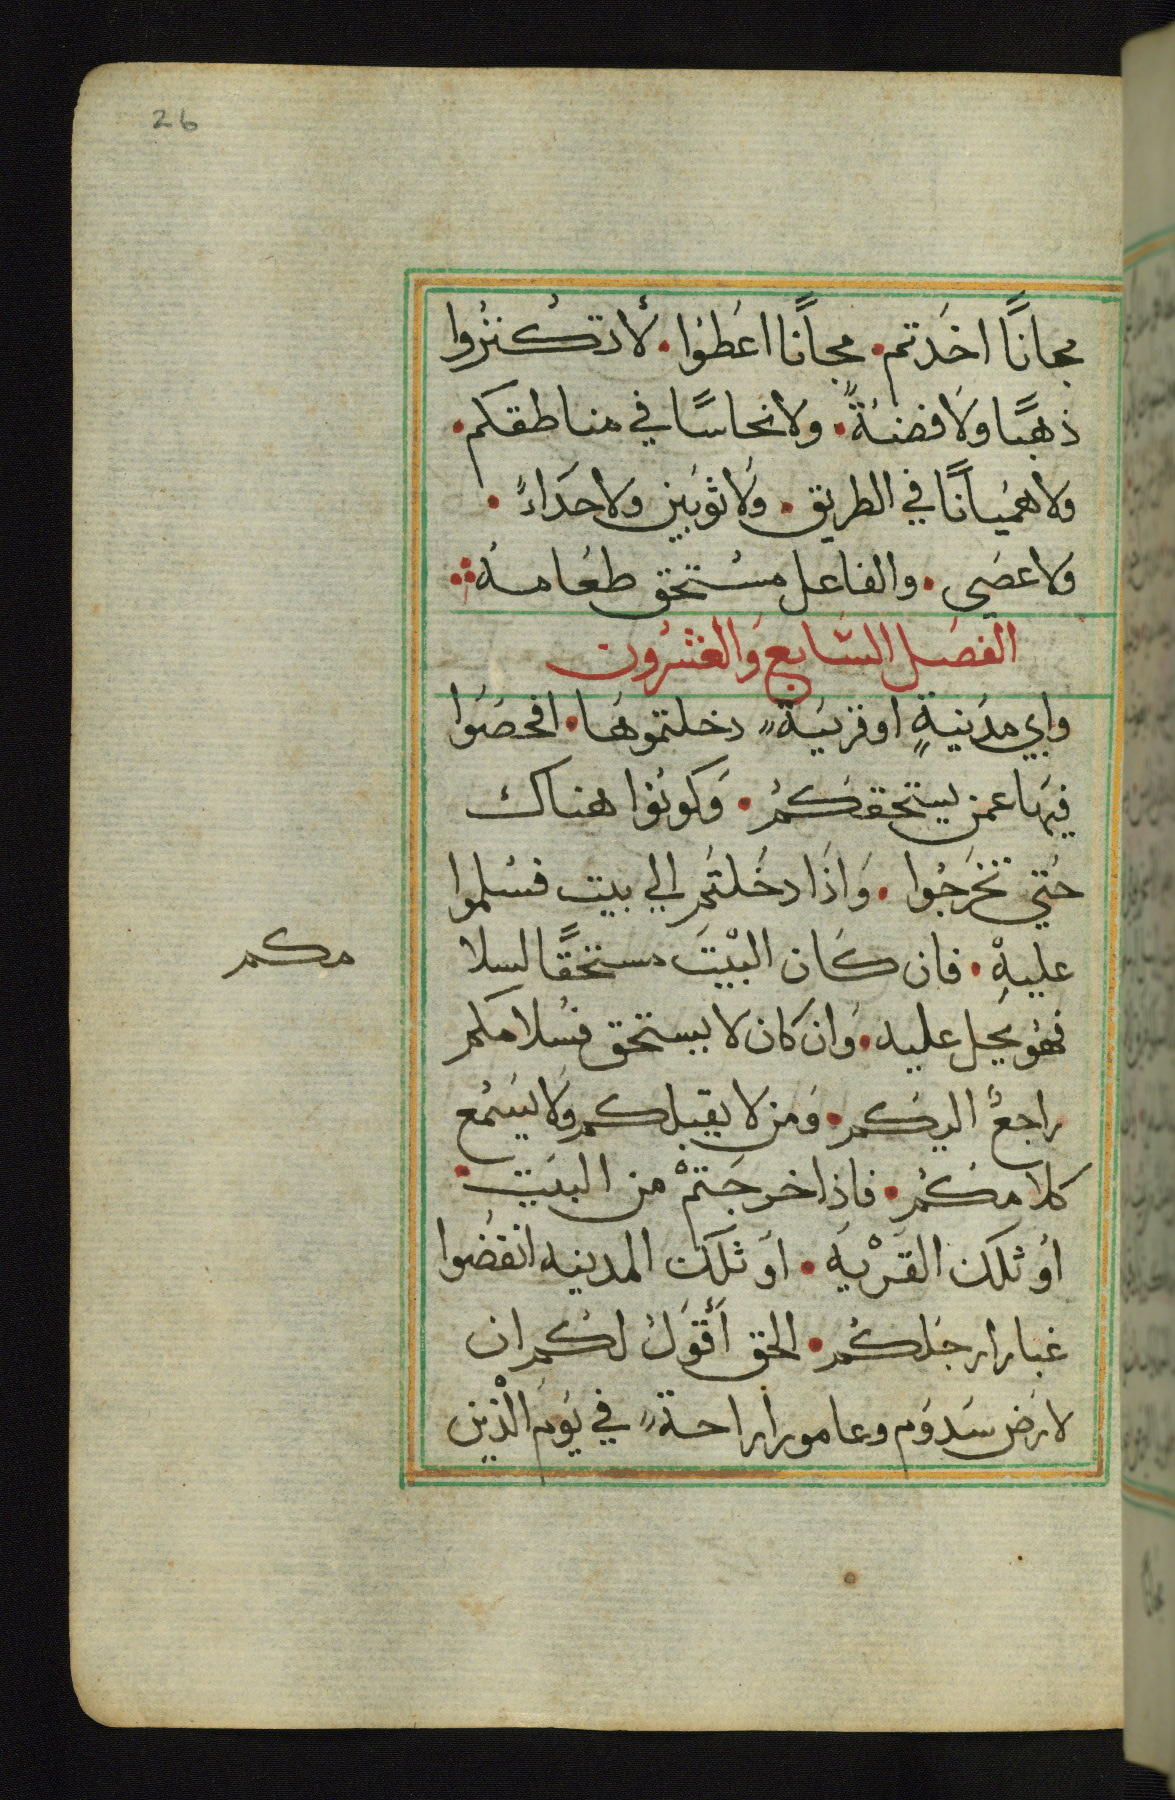 26
مجانًا اخَدتم • مجانًا اعَطوُا • لأ تكُنزُوا
ذهبًا ولَا فضةً • ولا نحاسًا في مناطقكم •
ولا هميَانًا في الطريق • ولَا ثوبَين ولا حدَاءً •
ولا عصَي • والفاعل مسُتحق طعَامهُ
الفصَل السَابع وَالعشرُون
واي مدَينةٍ او قريَةً دخلتموهَا • افحصَوُا
فيهَا عمن يستحقكَمُ • وَكونوُا هناك
حَتي تخرَجُوا • وَاذَا دخَلتَم الي بيت فسَلموا
عليهِْ • فان كَان البْيتَ مستحقًا لسلا
مكم
فهُو يحِل عليه • وَان كان لا يستحق فسُلامكم
راجعٌ اليكم • وَمن لا يقبلكم ولَا يسَمُع
كلامكَمُ • فاذا خرجَتمْ من البيَت •
أو تلكَ القرْيهَ • اوَ تلكَ المدينه انفضُوا
غبار ارجَلكُم • الحق أقوَلُ لكُم ان
لارَض سَدوَم وعامورا راحةً في يوَم الدْين